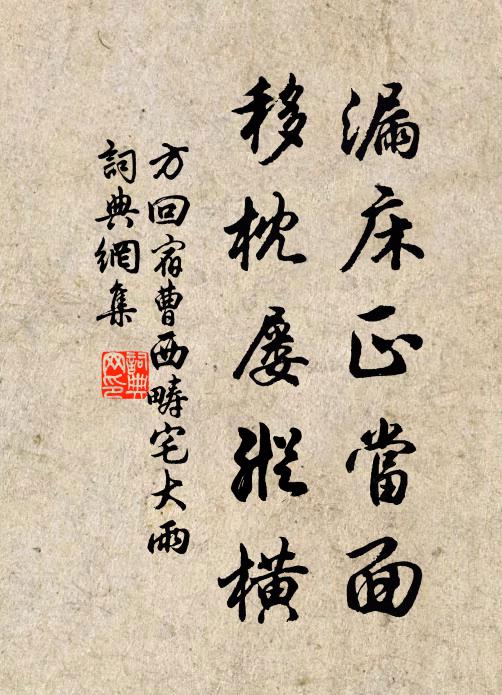 漏床正當面
移枕屡縱橫
方回宿曹西疇宅大雨
詞典網集
詞典網印